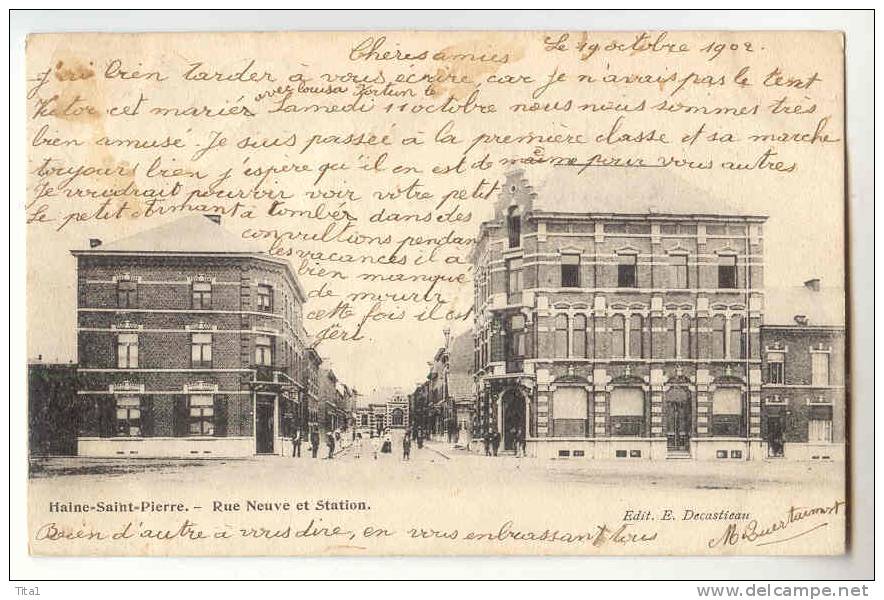 Chères amies Le 19 octobre 1902.
j'ai bien tarder à vous écrire car je n'avais pas le tent
Victor cet mariér avec louisa Fortun le Samedi 11 octobre nous nous sommes très
bien amusé. Je suis passéé à la première classe et sa marche
toujours bien j'espère qu'il en est de même pour vous autres
Je voudrait pouvoir voir votre petit
Le petit Armant à tombér dans des
convultions pendant
les vacances il a
bien manqué
de mourir
cette fois il est
géri.
Haine-Saint-Pierre. - Rue Neuve et Station.
Edit. E. Decastieau
Bien d'autre à vous dire, en vous embrassant tous
Tita1
www.delcampe.net